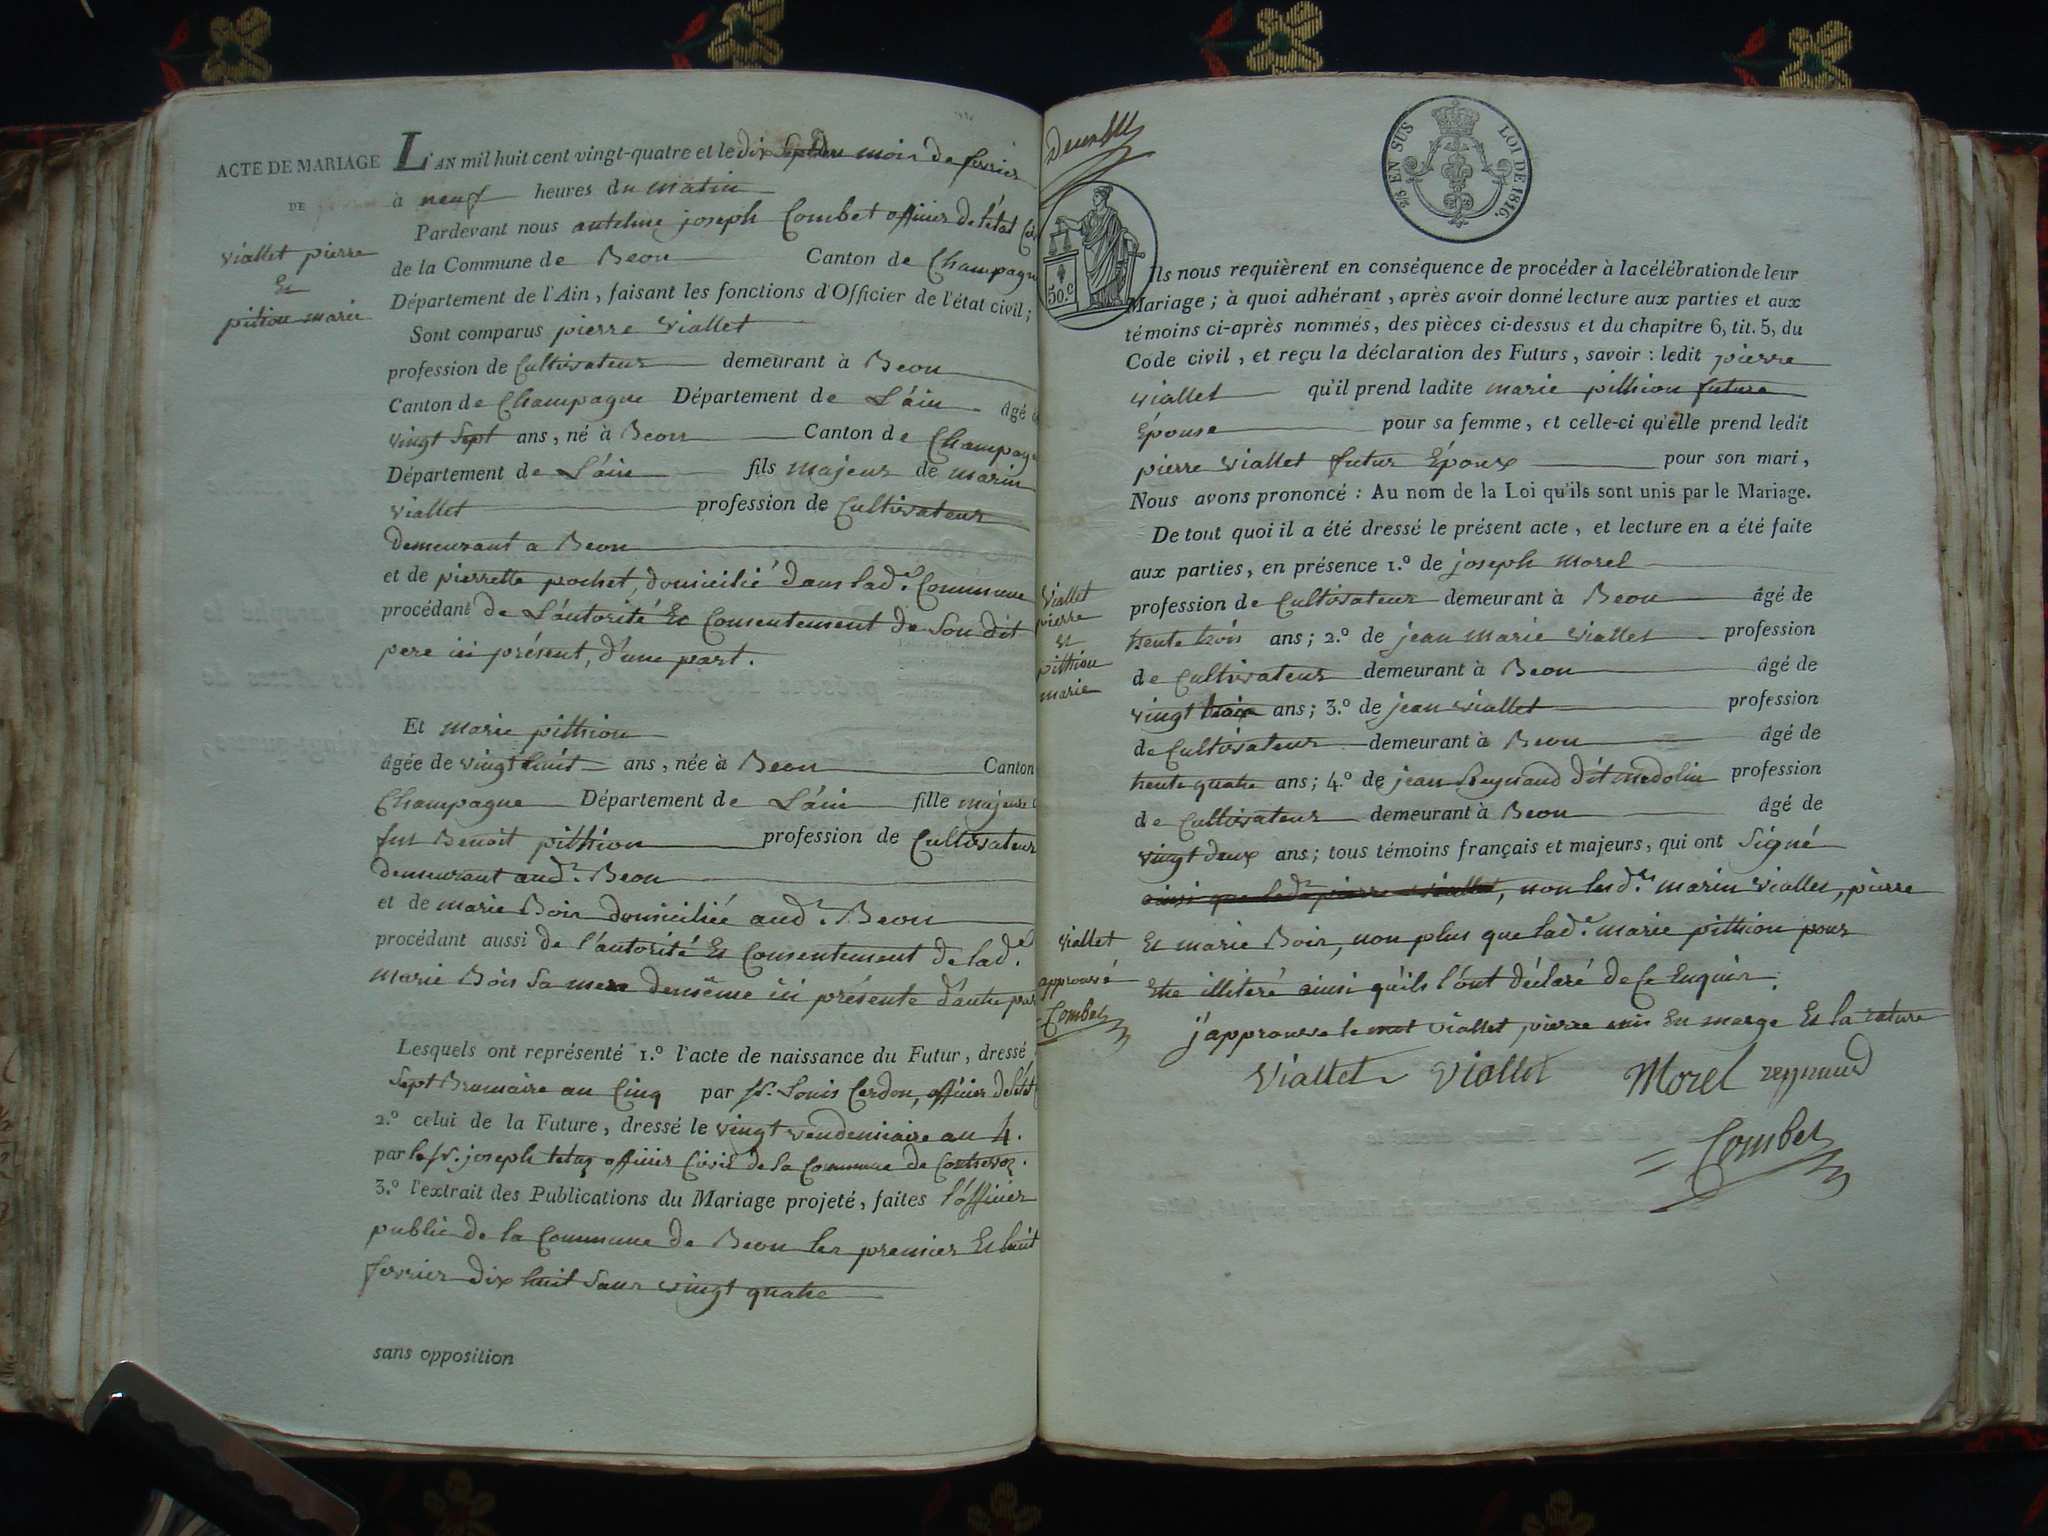 ACTE DE MARIAGE
DE
Viallet pierre
Et
pition marie
L'AN mil huit cent vingt-quatre et le dix Sept du mois de fevrier
à neuf heures du matin
Pardevant nous antelme joseph Combet officier De l'état
de la Commune de Beon Canton de Champagne
Département de l'Ain, faisant les fonctions d'Officier de l'état civil;
Sont comparus pierre Viallet
profession de Cultivateur demeurant à Beon
Canton de Champagne Département de L'ain âgé
vingt Sept ans, né à Beon Canton de Champagne
Département de L'ain fils majeur de marin
viallet profession de Cultivateur
demeurant a Beon
et de pierrette pochet, domicilié dans lad.e Commune
procédant de L'autorité Et Consentement de Son dit
pere ici présent, d'une part.
Et marie pithion
âgée de vingt huit ans, née à Beon Canton
Champagne Département de L'ain fille majeure
fut Benoit pithion profession de Cultivateur
demeurant aud.t Beon
et de marie Boin domiciliée aud.t Beon
procédant aussi de l'autorité Et Consentement de lad.e
marie Boin Sa mere demême ici présente d'autre part
Lesquels ont représenté 1.º l'acte de naissance du Futur, dressé
Sept Brumaire an Cinq par Sr. Louis Cerdon, officier De l'état
2.º celui de la Future, dressé le vingt vendemiaire an 4.
par le Sr. joseph officier Civil de la Commune de
3.º l'extrait des Publications du Mariage projeté, faites l'officier
public de la Commune de Beon les premier Et huit
fevrier dix huit Sans vingt quatre
sans opposition
2/3 EN SUS LOI DE 1816.
50.c
Ils nous requièrent en conséquence de procéder à la célébration de leur
Mariage; à quoi adhérant, après avoir donné lecture aux parties et aux
témoins ci-après nommés, des pièces ci-dessus et du chapitre 6, tit. 5, du
Code civil, et reçu la déclaration des Futurs, savoir: ledit pierre
viallet qu'il prend ladite marie pithion future
Épouse pour sa femme, et celle-ci qu'elle prend ledit
pierre viallet futur Époux pour son mari,
Nous avons prononcé: Au nom de la Loi qu'ils sont unis par le Mariage.
De tout quoi il a été dressé le présent acte, et lecture en a été faite
aux parties, en présence 1.º de joseph morel
Viallet
pierre
Et
pithion
marie
profession de Cultivateur demeurant à Beon âgé de
trente trois ans; 2.º de jean marie viallet profession
de Cultivateur demeurant à Beon âgé de
vingt trois ans; 3.º de jean viallet profession
de Cultivateur demeurant à Beon âgé de
trente quatre ans; 4.º de jean Reynaud dit medolin profession
de Cultivateur demeurant à Beon âgé de
vingt deux ans; tous témoins français et majeurs, qui ont Signé
ainsi que led.t pierre viallet, non les d.ts marin viallet, pierre
viallet
Et marie Boin, non plus que lad.e marie pithion pour
approuvé
Etre illitéré ainsi qu'ils l'ont déclaré de Ce Enquis.
Combet
j'approuve le mot viallet pierre mis En marge Et la rature
Viallet Viallet Morel reynaud
Combet